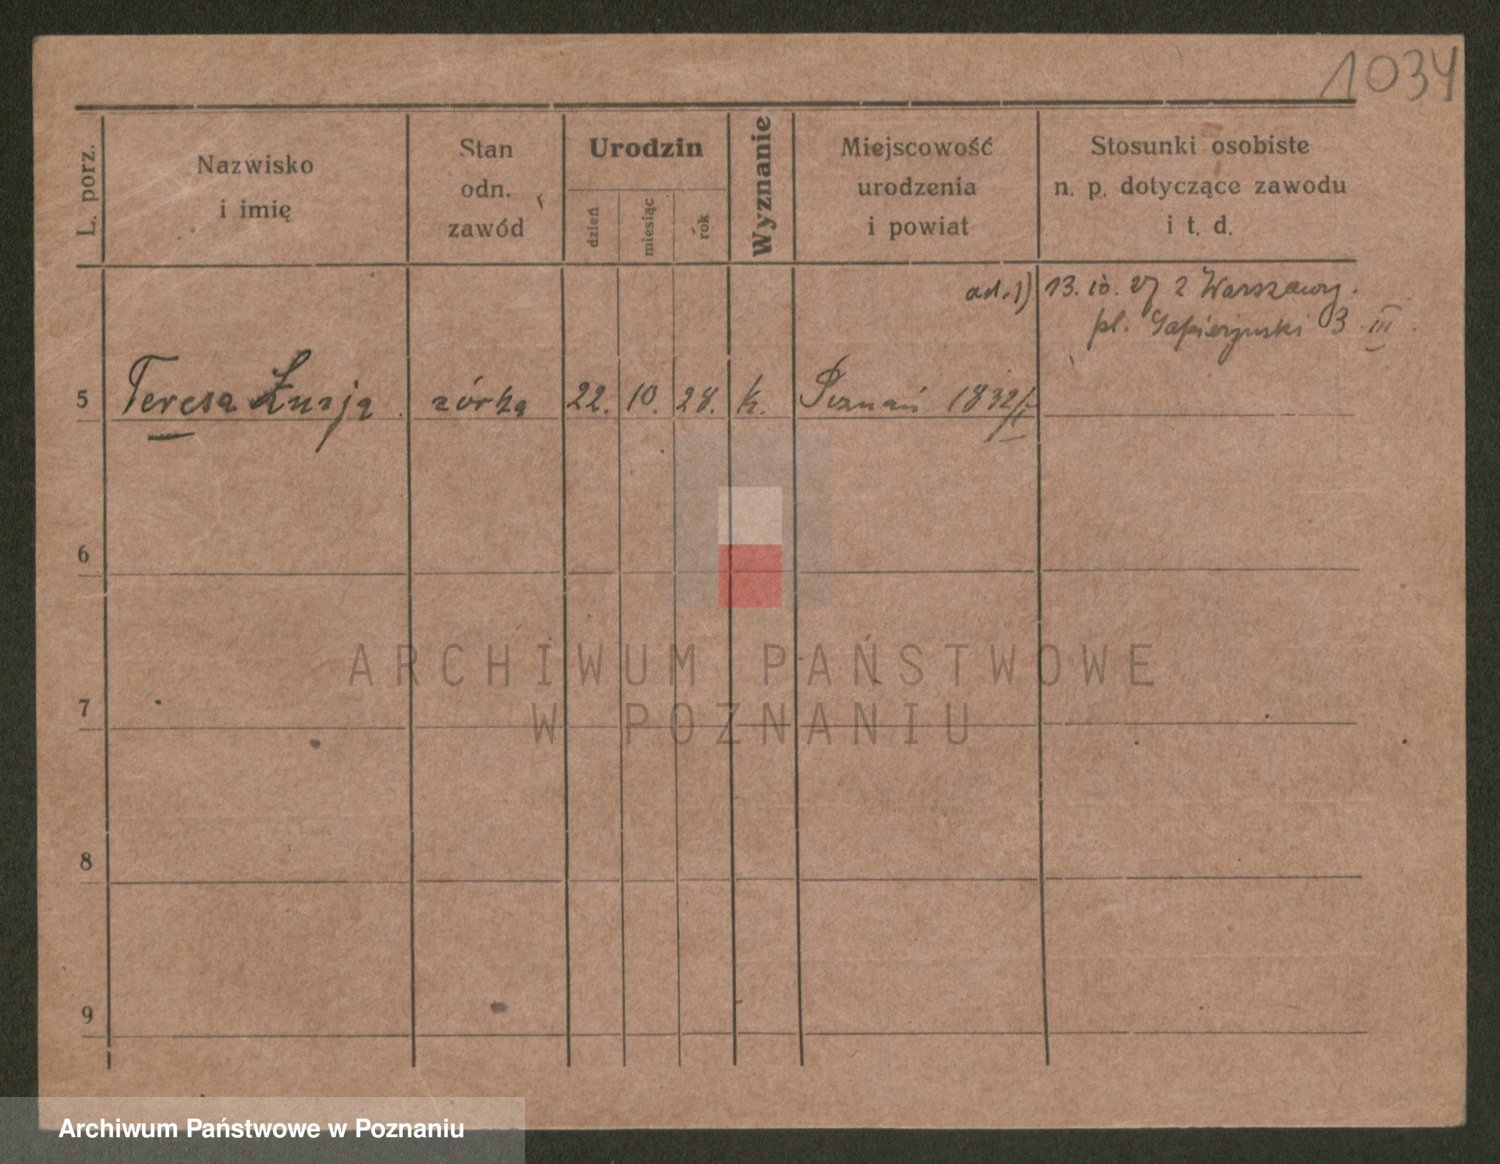 1034
L. porz.
Nazwisko
i imię
Stan
odn.
zawód
Urodzin
dzień
miesiąc
rok
Wyznanie
Miejscowość
urodzenia
i powiat
Stosunki osobiste
n. p. dotyczące zawodu
i t. d.
ad. 1) 13. 10. 27 z Warszawy.
pl. Sapieżyński 3 III
5 Teresa córka 22. 10. 28. k. Poznań 1832/
6
7
8
9
ARCHIWUM PAŃSTWOWE
W POZNANIU
Archiwum Państwowe w Poznaniu